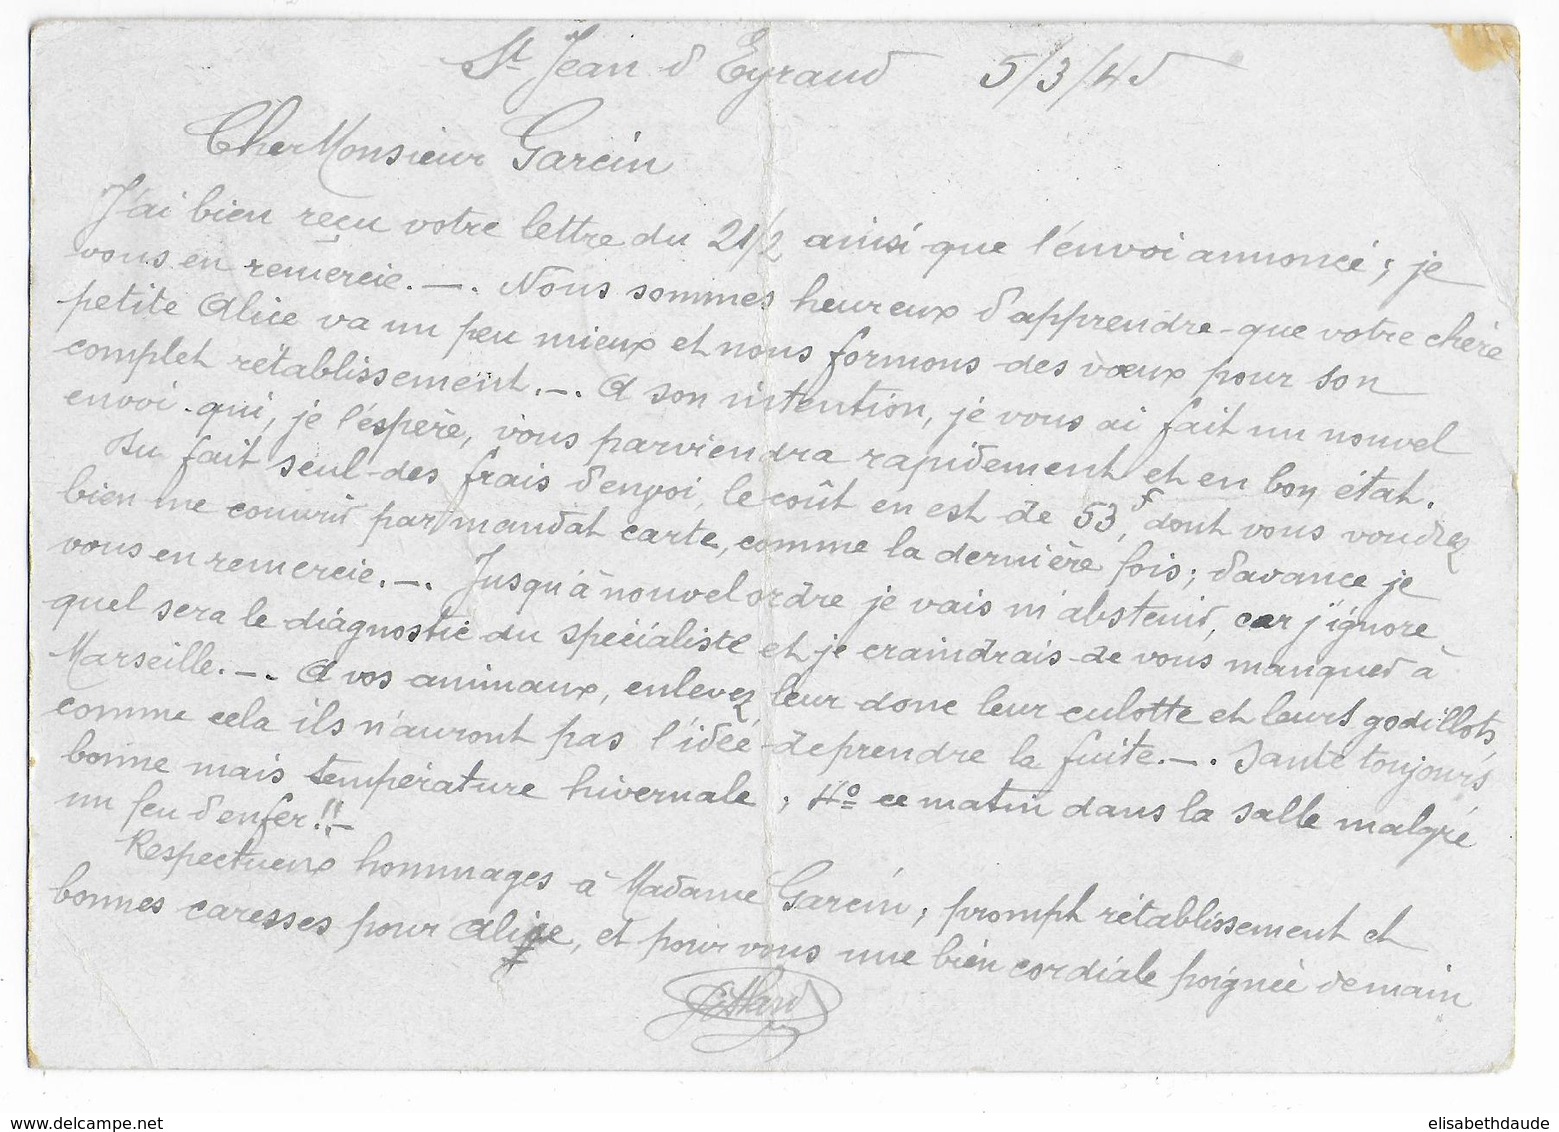 St Jean d'Eyraud 5/3/45
Cher Monsieur Garcin
J'ai bien reçu votre lettre du 21/2 ainsi que l'envoi annoncé ; je
vous en remercie. —. Nous sommes heureux d'apprendre que votre chère
petite Alice va un peu mieux et nous formons des vœux pour son
complet rétablissement. —. A son intention, je vous ai fait un nouvel
envoi qui, je l'espère, vous parviendra rapidement et en bon état.
Du fait seul des frais d'envoi, le coût en est de 53f, dont vous voudrez
bien me couvrir par mandat carte, comme la dernière fois ; d'avance je
vous en remercie. —. Jusqu'à nouvel ordre je vais m'abstenir, car j'ignore
quel sera le diagnostic du spécialiste et je craindrais de vous manquer à
Marseille. —. A vos animaux, enlevez leur donc leur culotte et leurs godillots,
comme cela ils n'auront pas l'idée de prendre la fuite. —. Santé toujours
bonne mais température hivernale ; 4° ce matin dans la salle malgré
un feu d'enfer !! —
Respectueux hommages à Madame Garcin ; prompt rétablissement et
bonnes caresses pour Alice, et pour vous une bien cordiale poignée de main
elisabethdaude